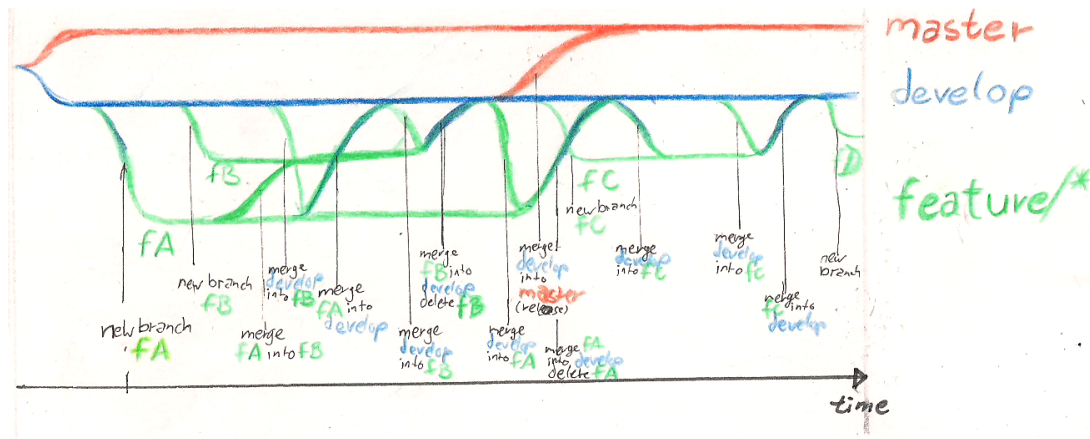 master
develop
feature/*
fB
fA
fC
D
new branch
fA
new branch
fB
merge
fA into fB
merge
develop
into fB
merge
fA into
develop
merge
develop
into fB
merge
fB into
develop
delete fB
merge
develop
into fA
merge
develop
into
master
(release)
merge fA
into develop
delete fA
new branch
fC
merge
develop
into fC
merge
develop
into fC
merge
fC into
develop
new
branch
time